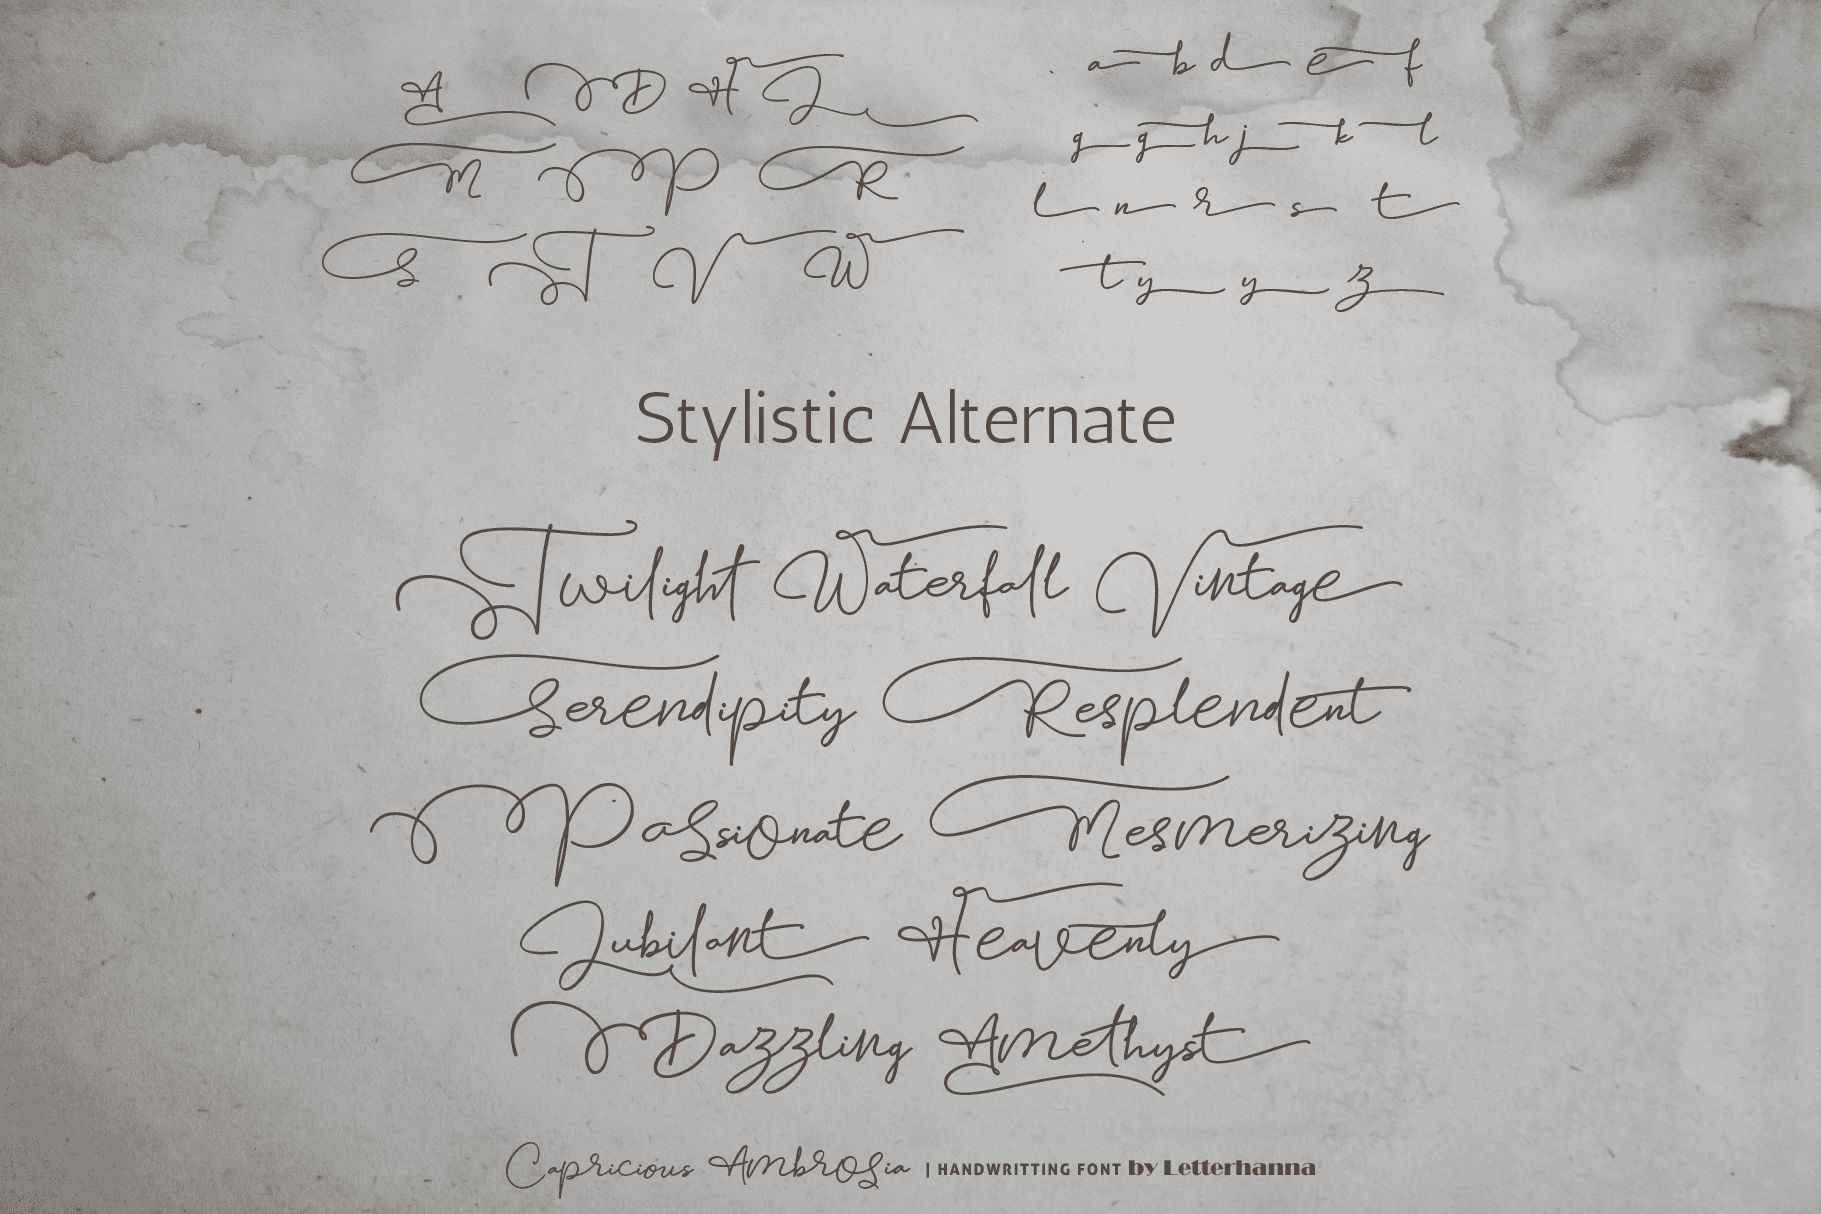 A D H J
M P R
S T V W
a b d e f
g g h j k l
l n r s t
t y y z
Stylistic Alternate
Twilight Waterfall Vintage
Serendipity Resplendent
Passionate Mesmerizing
Jubilant Heavenly
Dazzling Amethyst
Capricious Ambrosia | HANDWRITTING FONT by Letterhanna